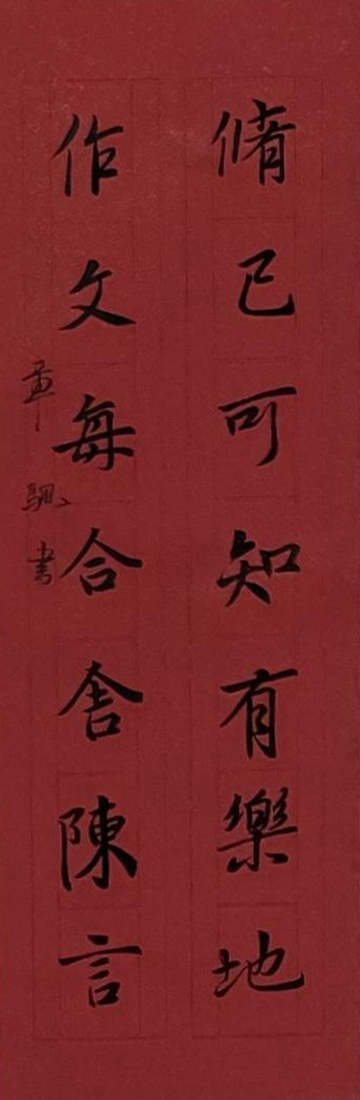 脩己可知有樂地
作文每合舍陳言
章颿書